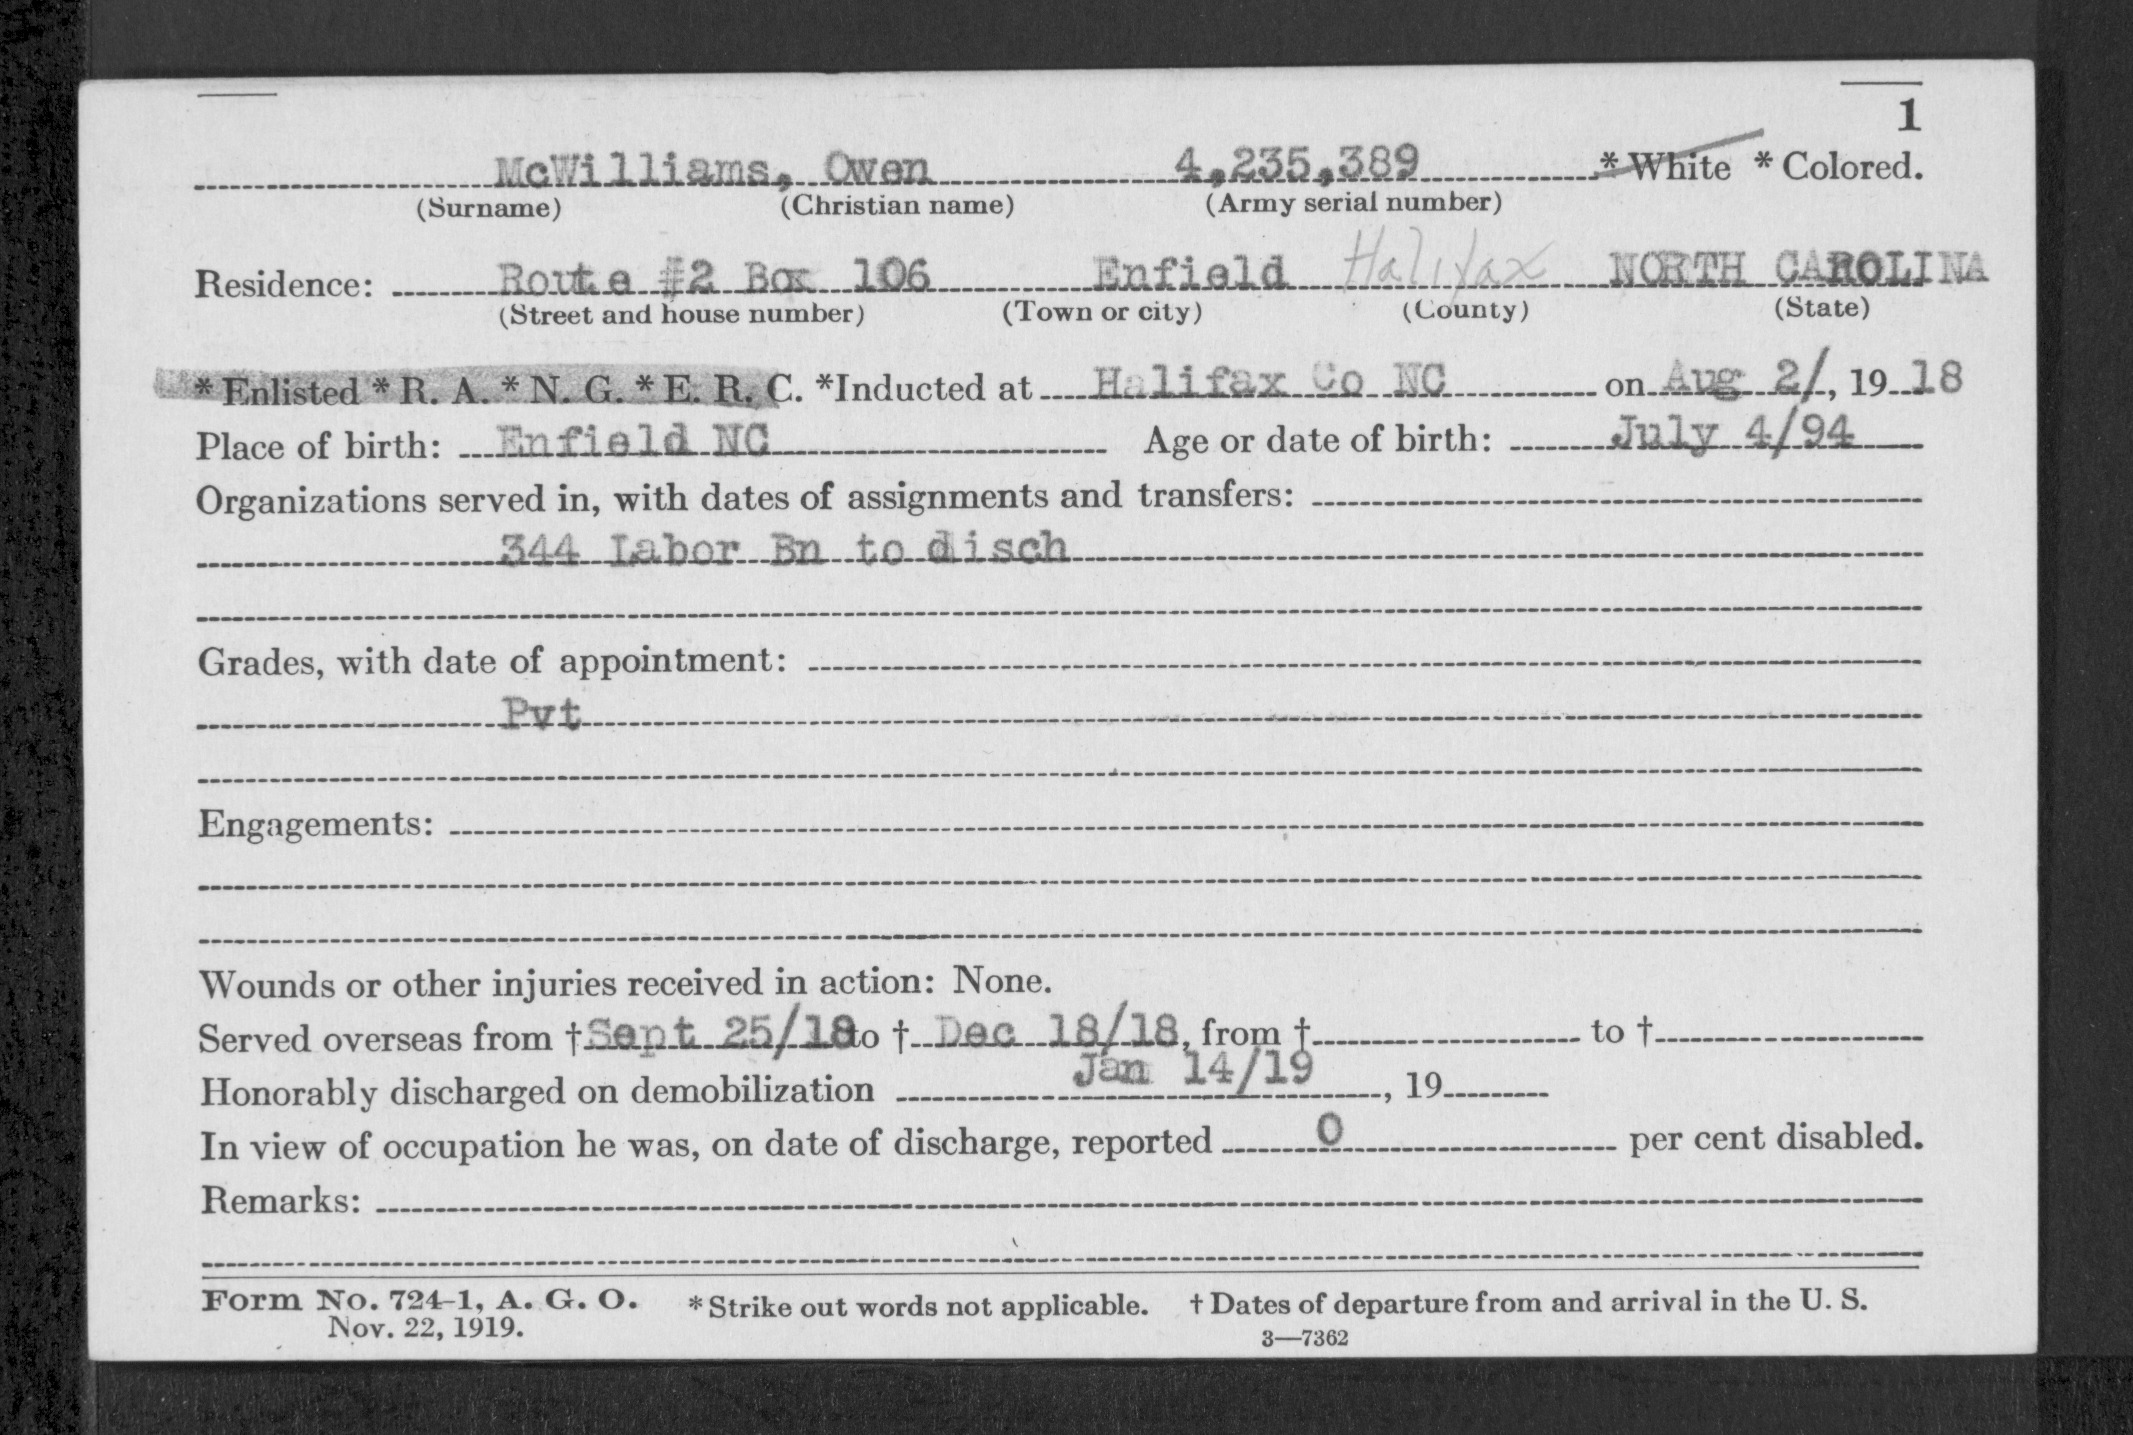 1
McWilliams, Owen 4,235,389 * White * Colored.
(Surname) (Christian name) (Army serial number)
Residence: Route #2 Box 106 Enfield Halifax NORTH CAROLINA
(Street and house number) (Town or city) (County) (State)
* Enlisted * R. A. * N. G. * E. R. C. *Inducted at Halifax Co NC on Aug 2/, 19 18
Place of birth: Enfield NC Age or date of birth: July 4/94
Organizations served in, with dates of assignments and transfers:
344 Labor Bn to disch
Grades, with date of appointment:
Pvt
Engagements:
Wounds or other injuries received in action: None.
Served overseas from † Sept 25/18 to † Dec 18/18, from † to †
Honorably discharged on demobilization Jan 14/19, 19
In view of occupation he was, on date of discharge, reported 0 per cent disabled.
Remarks:
Form No. 724-1, A. G. O. * Strike out words not applicable. † Dates of departure from and arrival in the U. S.
Nov. 22, 1919. 3—7362